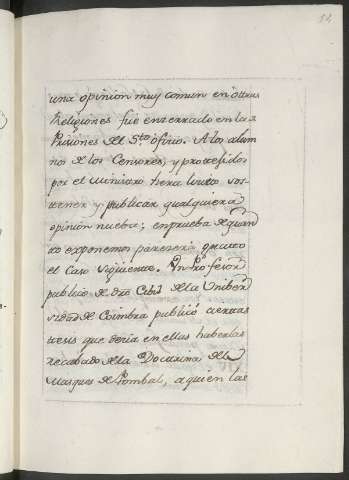 una opinion muy comun en otras
Religiones fué enzerrado en las
Prisiones del Sto. ofizio. A los alum
nos de los Censores, y protexidos
por el ministro hera lizito, sos
tener y publicar qualquiera
opinion nueba; en prueba de quan
to exponemos parezerá grato
el caso siguiente. Un Profesor
publico de dro Cibil de la Uniber
sidad de Coimbra publicó ciertas
tesis que dezia en ellas haberlas
recabado de la Doctrina del
Marques de Pombal, a quien las